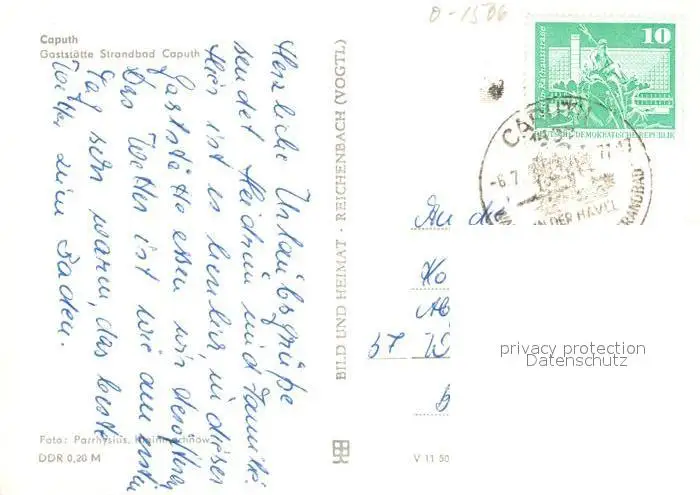 0-1506
Caputh
Gaststätte Strandbad Caputh
Herzliche Urlaubsgrüße
sendet Heidrun und Familie.
Hier ist es herrlich, in dieser
Gaststätte essen wir des öfteren
Das Wetter ist wie am ersten
Tag sehr warm, das beste
Wetter zum Baden.
Foto: Parrhysius, Kleinmachnow
DDR 0,20 M
BILD UND HEIMAT · REICHENBACH (VOGTL)
V 11 50
10
Berlin, Rathausstraße
DEUTSCHE DEMOKRATISCHE REPUBLIK
CAPUTH
-6.7
77-17
IN DER HAVEL
STRANDBAD
An
57
privacy protection
Datenschutz